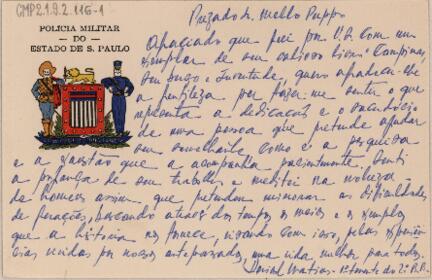 GMP2.1.9.2.116-1
POLICIA MILITAR
DO
ESTADO DE S. PAULO
Prezado Dr. Mello Puppo
que fui por V.S. com um
exemplar de seu valioso livro "Campinas,
seu berço e juventude, quero agradecer-lhe
a gentileza por fazer-me sentir o que
representa a dedicação e o sacrifício
de uma pessoa que pretende ajudar
seu semelhante como é a pesquisa
e a questão que a acompanha pacientemente. Senti
a pujança de seu trabalho e meditei na nobreza
de homens assim, que pretendem minorar as dificuldades
de gerações, buscando através dos tempos os meios e os exemplos
que a história nos fornece, visando com isso, pelas experiên-
cias vividas por nossos antepassados, uma vida melhor para todos.